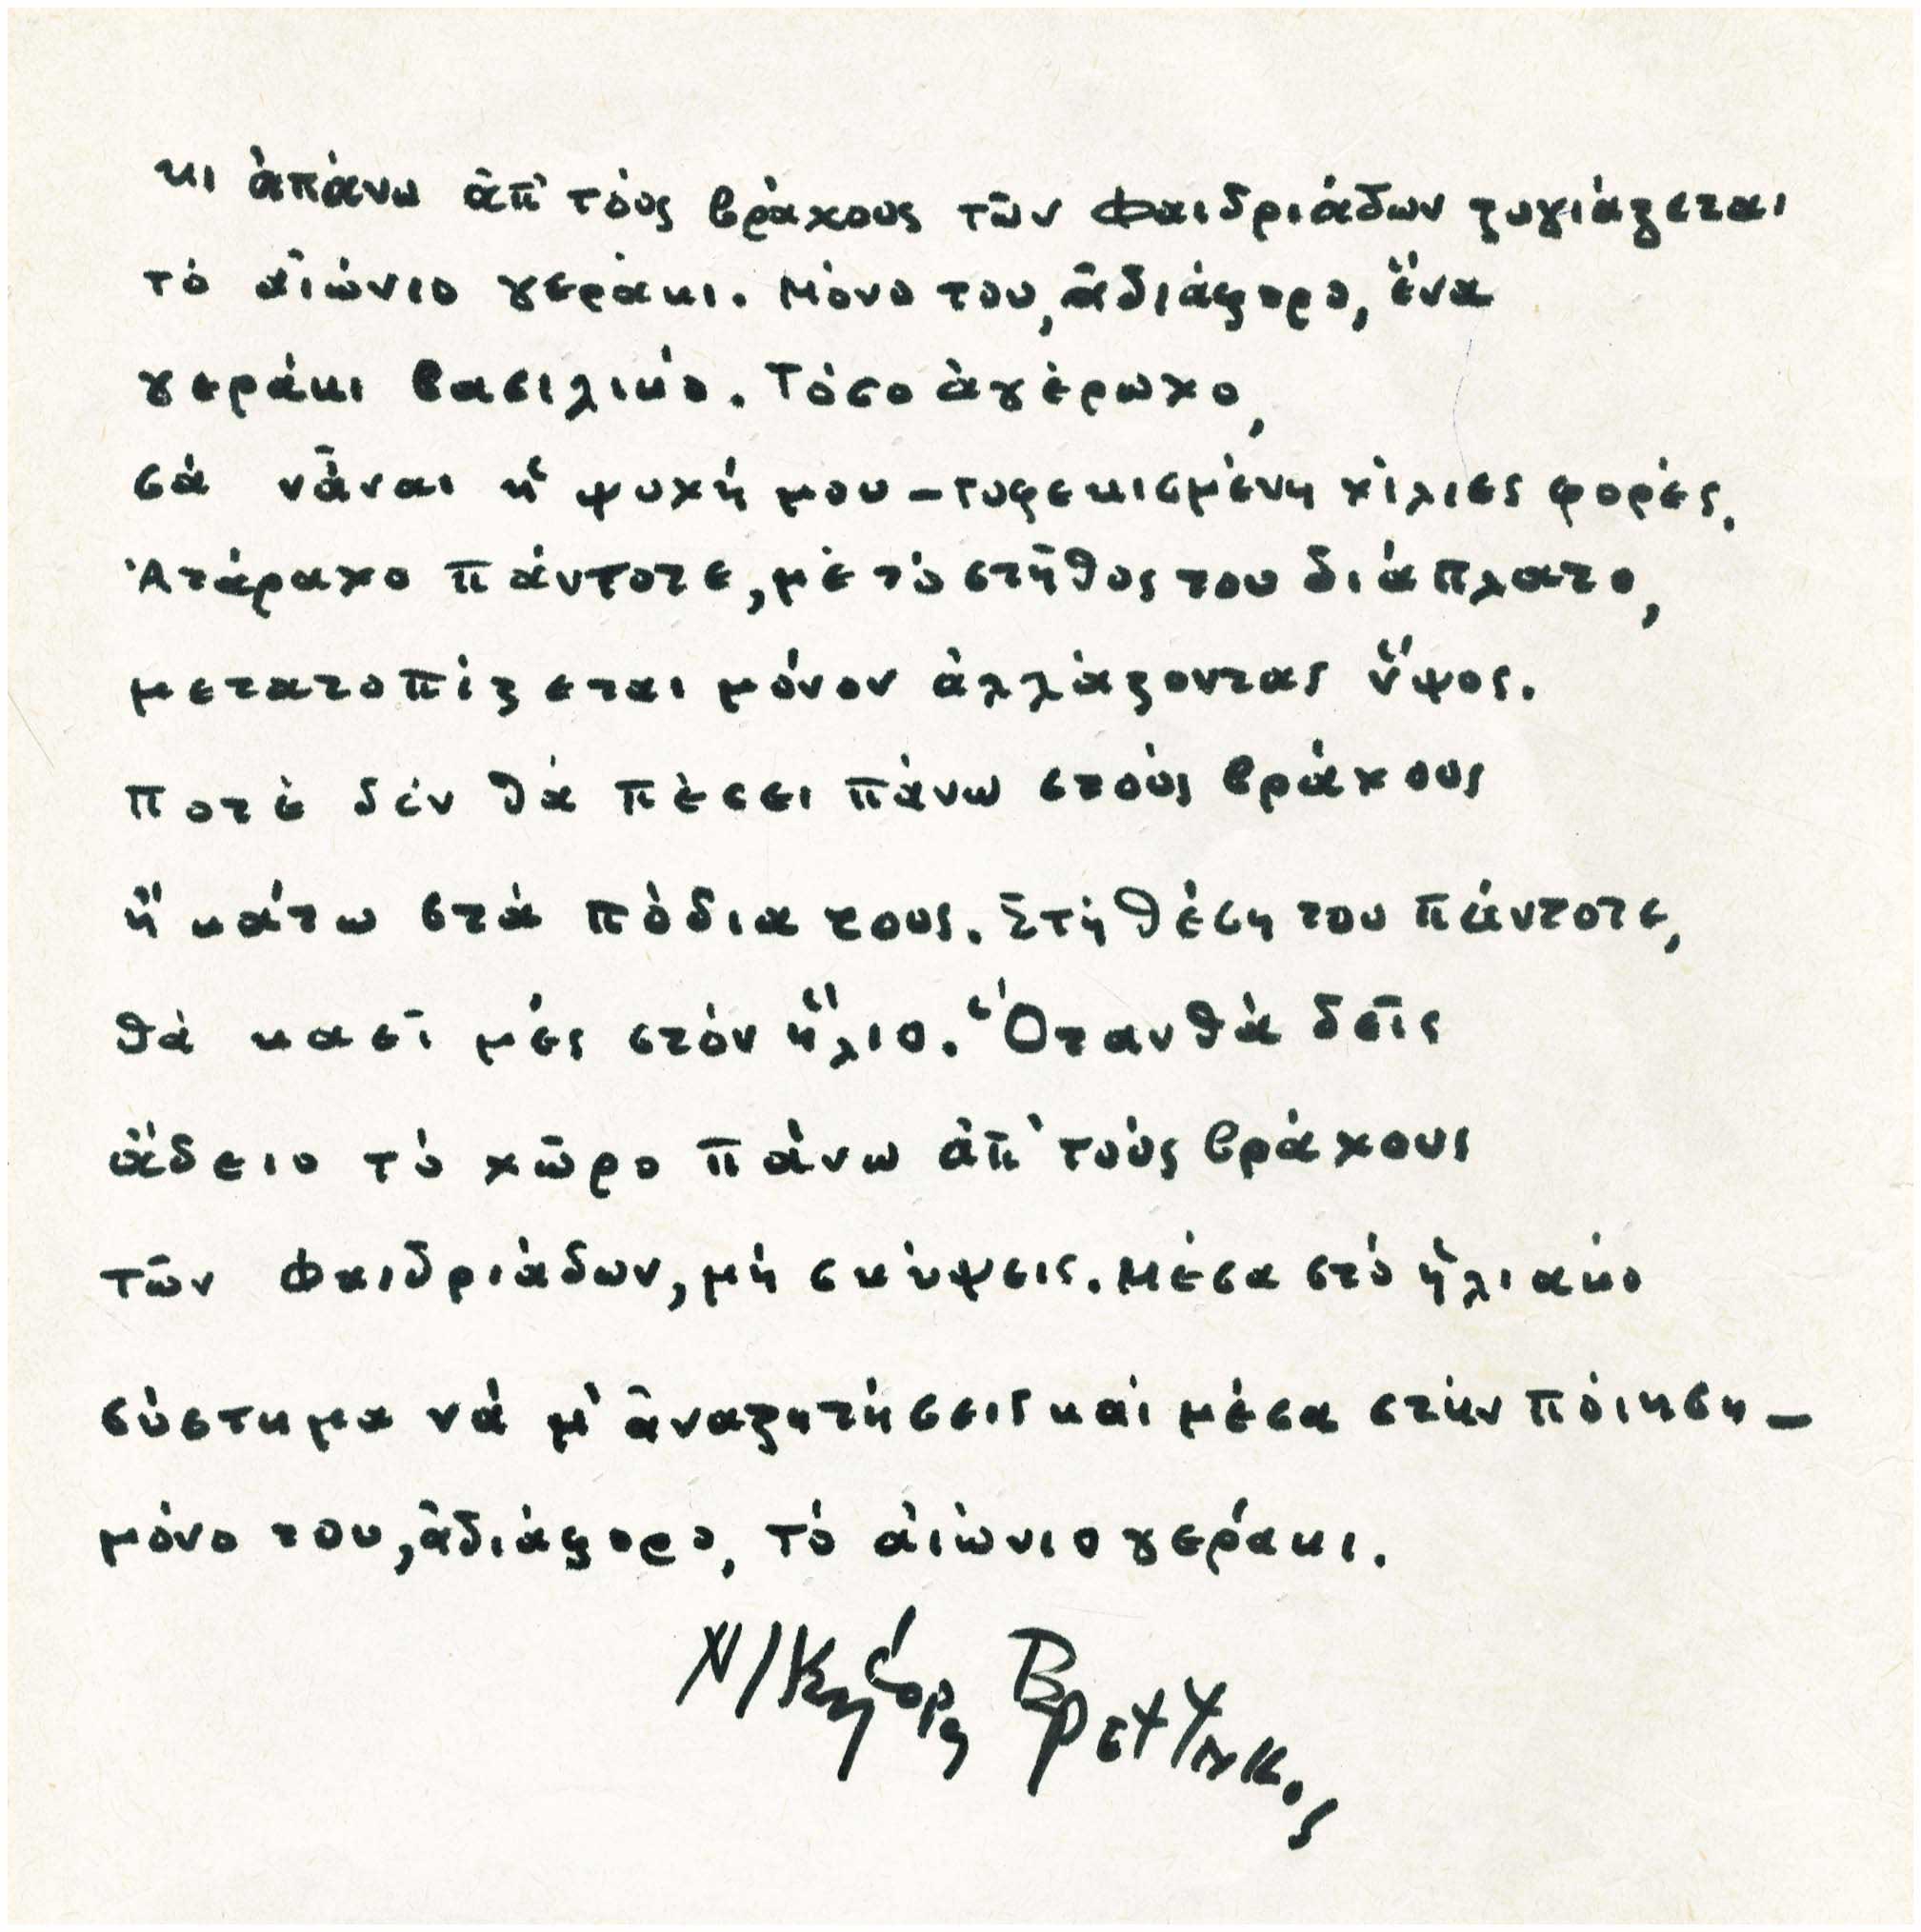 κι ἀπάνω ἀπ' τούς βράχους τῶν Φαιδριάδων ζυγιάζεται
τό αἰώνιο γεράκι. Μόνο του, ἀδιάφορο, ἕνα
γεράκι βασιλικό. Τόσο ἀγέρωχο,
σά νἆναι ἡ ψυχή μου – τυφεκισμένη χίλιες φορές.
Ἀτάραχο πάντοτε, μέ τό στῆθος του διάπλατο,
μετατοπίζεται μόνον ἀλλάζοντας ὕψος.
Ποτέ δέν θά πέσει πάνω στούς βράχους
ἤ κάτω στά πόδια τους. Στή θέση του πάντοτε,
θά καεῖ μές στόν ἥλιο. Ὅταν θά δεῖς
ἄδειο τό χῶρο πάνω ἀπ' τούς βράχους
τῶν Φαιδριάδων, μή σκύψεις. Μέσα στό ἡλιακό
σύστημα νά μ' ἀναζητήσεις καί μέσα στήν ποίηση –
μόνο του, ἀδιάφορο, τό αἰώνιο γεράκι.
Νικηφόρος Βρεττάκος